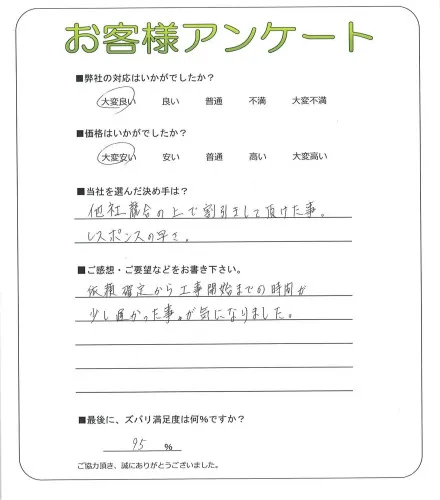 お客様アンケート
■弊社の対応はいかがでしたか?
大変良い 良い 普通 不満 大変不満
■価格はいかがでしたか?
大変安い 安い 普通 高い 大変高い
■当社を選んだ決め手は?
他社競合の上で割引きして頂けた事。
レスポンスの早さ。
■ご感想・ご要望などをお書き下さい。
依頼確定から工事開始までの時間が
少し遅かった事。が気になりました。
■最後に、ズバリ満足度は何%ですか?
95 %
ご協力頂き、誠にありがとうございました。